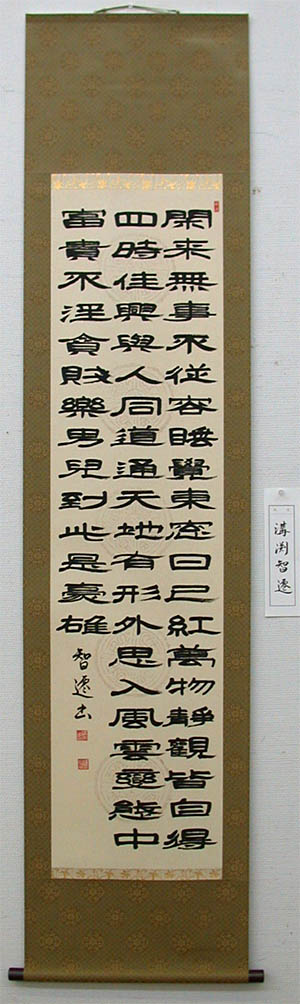 閑来無事不從容睡覺東窓日已紅萬物静觀皆自得
四時佳興與人同道通天地有形外思入風雲變態中
富貴不淫貧賤樂男兒到此是豪雄
智遷書
溝渕智遷